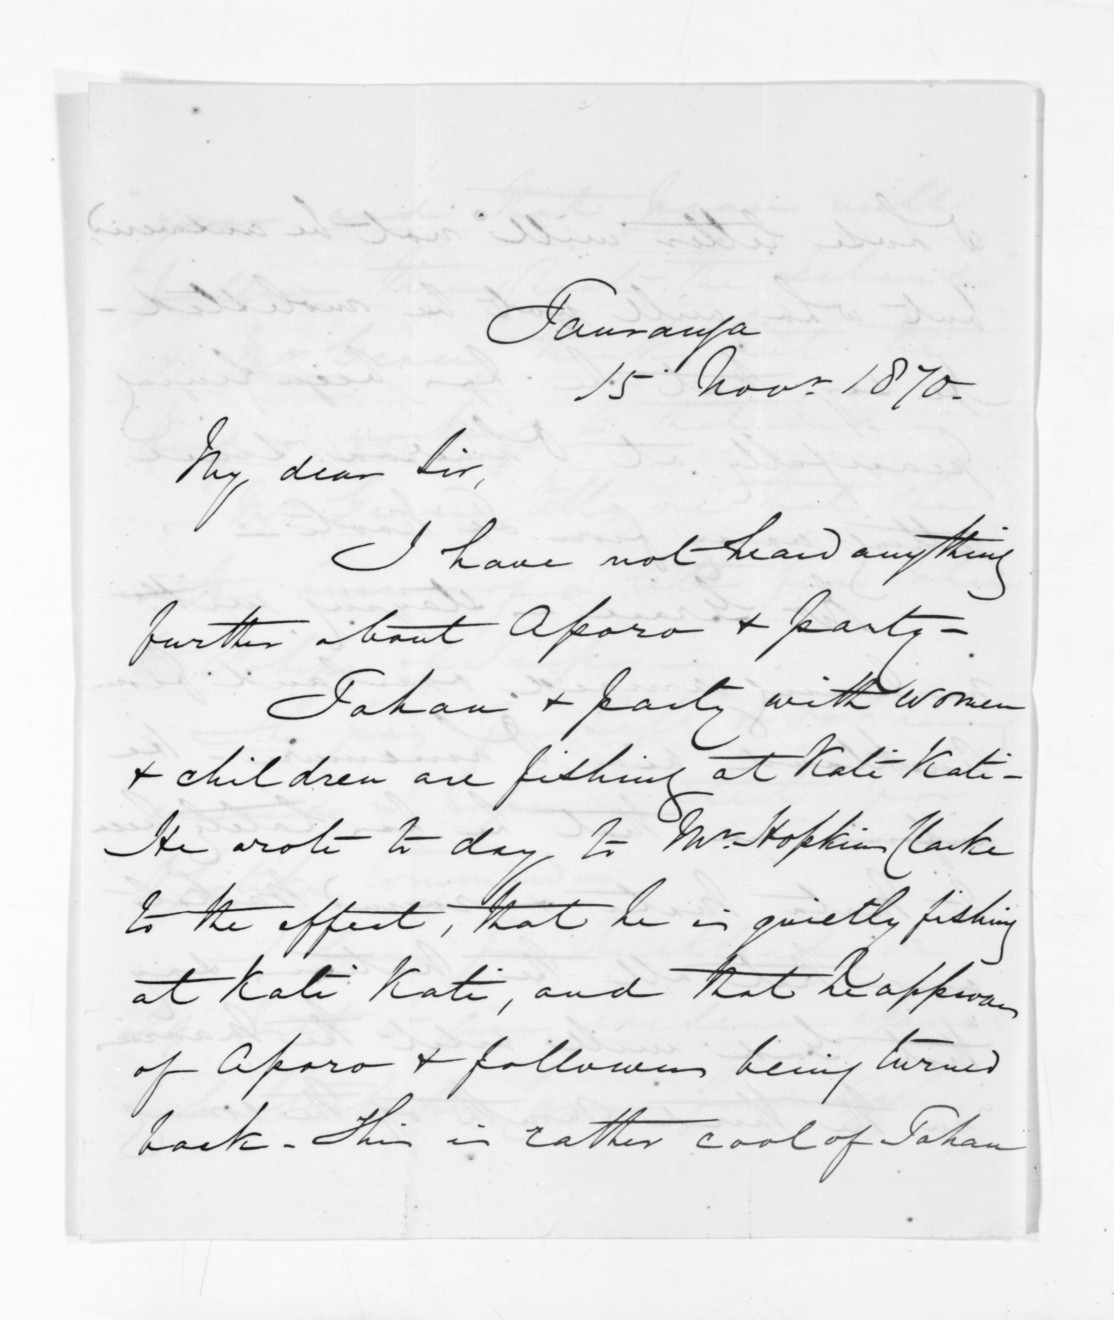 Tauranga
15 Novr. 1870 -
My dear Sir,
I have not heard anything
further about Aporo & party -
Tahau & party with women
& children are fishing at Kati Kati -
He wrote to day to Mr. Hopkins Clarke
to the effect, that he is quietly fishing
at Kati Kati, and that he approves
of Aporo & followers being turned
back - This is rather cool of Tahau